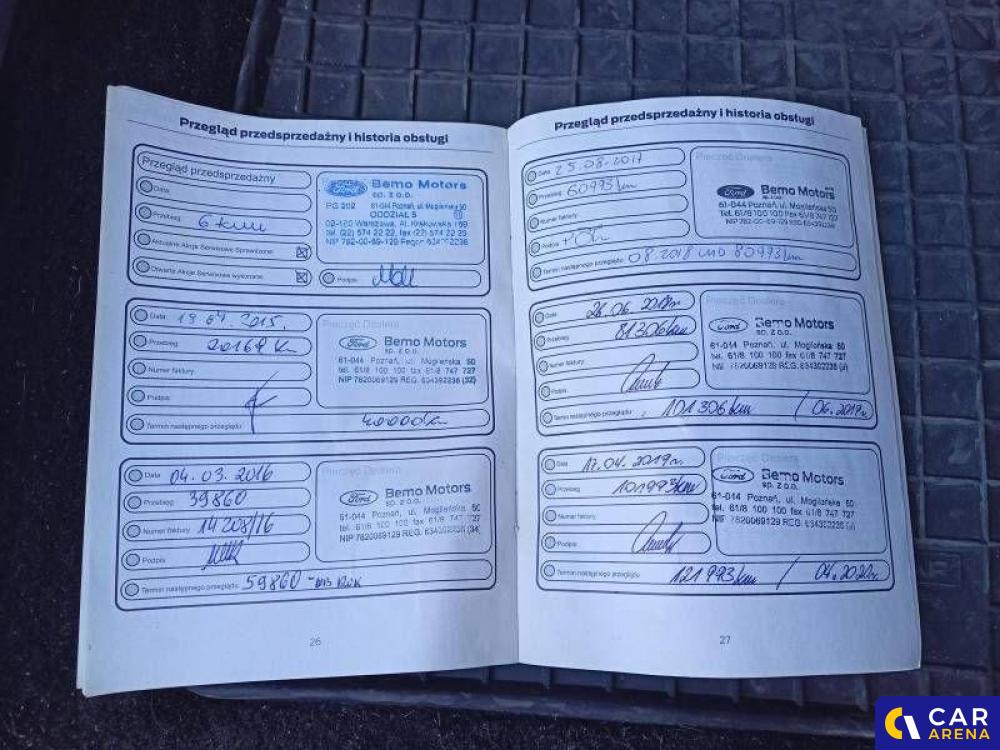 Przegląd przedsprzedażny i historia obsługi
Przegląd przedsprzedażny
Data
Przebieg 6 km
Aktualne Akcje Serwisowe Sprawdzone
Otwarte Akcje Serwisowe wykonane
Ford Bemo Motors
sp. z o.o.
PG 202 61-044 Poznań, ul. Mogileńska 50
ODDZIAŁ 5
02-180 Warszawa, Al. Krakowska
tel. (22) 574 22 22, fax (22) 574 22 23
NIP 782-00-69-129
Podpis
Data 19.04.2015.
Przebieg
Numer faktury
Podpis
Termin następnego przeglądu 40000km
Pieczęć Dealera
Ford Bemo Motors
sp. z o.o.
61-044 Poznań, ul. Mogileńska 50
tel. 61/8 100 100 fax 61/8 747 727
NIP 7820069129 REG. 634392236 (32)
Data 04.03.2016
Przebieg 39860
Numer faktury 14208/16
Podpis
Termin następnego przeglądu 59860
Pieczęć Dealera
Ford Bemo Motors
sp. z o.o.
61-044 Poznań, ul. Mogileńska 50
tel. 61/8 100 100 fax 61/8 747 727
NIP 7820069129 REG. 634392236 (34)
26
Przegląd przedsprzedażny i historia obsługi
Data 25.08.2017
Przebieg 60993km
Numer faktury
Podpis
Termin następnego przeglądu 08.2018 80993km
Pieczęć Dealera
Ford Bemo Motors
sp. z o.o.
61-044 Poznań, ul. Mogileńska 50
Tel. 61/8 100 100 fax 61/8 747 727
Data 28.06.2018r.
Przebieg 81306km
Numer faktury
Podpis
Termin następnego przeglądu 101306km / 06.2019r.
Pieczęć Dealera
Ford Bemo Motors
sp. z o.o.
61-044 Poznań, ul. Mogileńska 50
tel. 61/8 100 100 fax 61/8 747 727
Data 17.04.2019r.
Przebieg 101993km
Numer faktury
Podpis
Termin następnego przeglądu 121993km / 04.2020r.
Pieczęć Dealera
Ford Bemo Motors
sp. z o.o.
61-044 Poznań, ul. Mogileńska 50
tel. 61/8 100 100 fax 61/8 747 727
27
CAR
ARENA